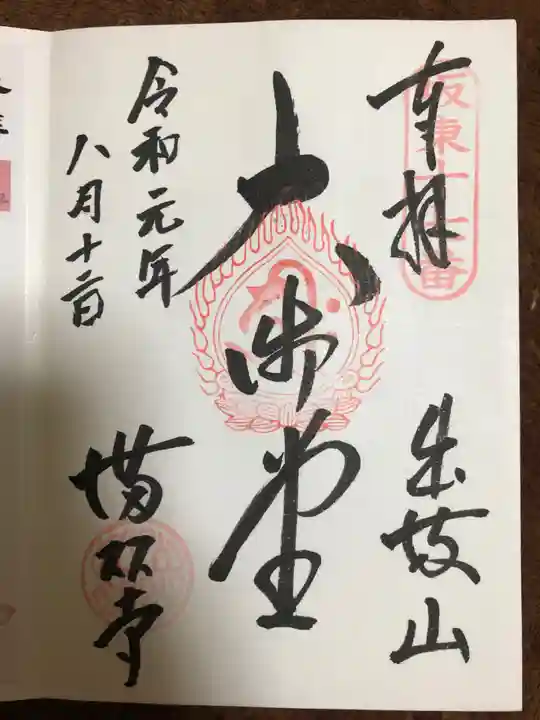 坂東十七番
奉拝
出流山
大御堂
令和元年
八月十二日
満願寺